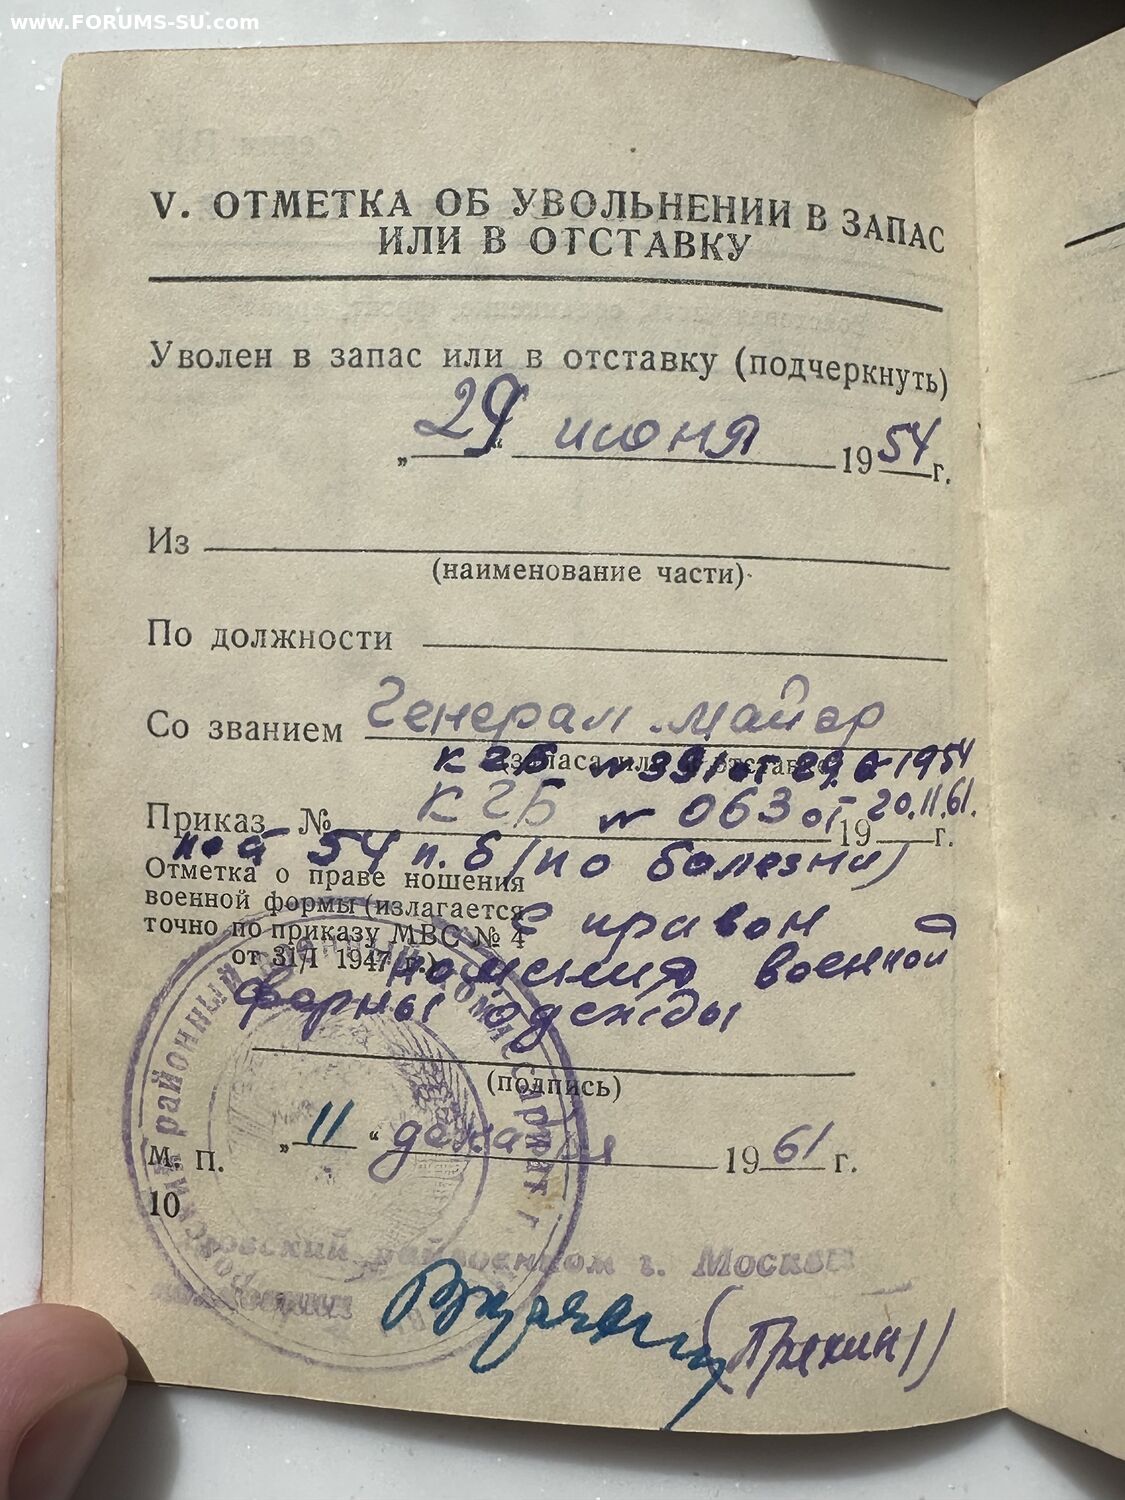 www.FORUMS-SU.com
V. ОТМЕТКА ОБ УВОЛЬНЕНИИ В ЗАПАС
ИЛИ В ОТСТАВКУ
Уволен в запас или в отставку (подчеркнуть)
„29“ июня 1954 г.
Из
(наименование части)
По должности
Со званием Генерал майор
КГБ № 391 от 29.6-1954
Приказ № КГБ № 063 от 20.11.61. 19 г.
54 п. б (по болезни)
Отметка о праве ношения
военной формы (излагается
точно по приказу МВС № 4
от 31/I 1947 г.)
с правом
ношения военной
формы одежды
(подпись)
„11“ декабря 1961 г.
М. П.
10
районный военный комиссариат г.
райвоенком г. Москвы